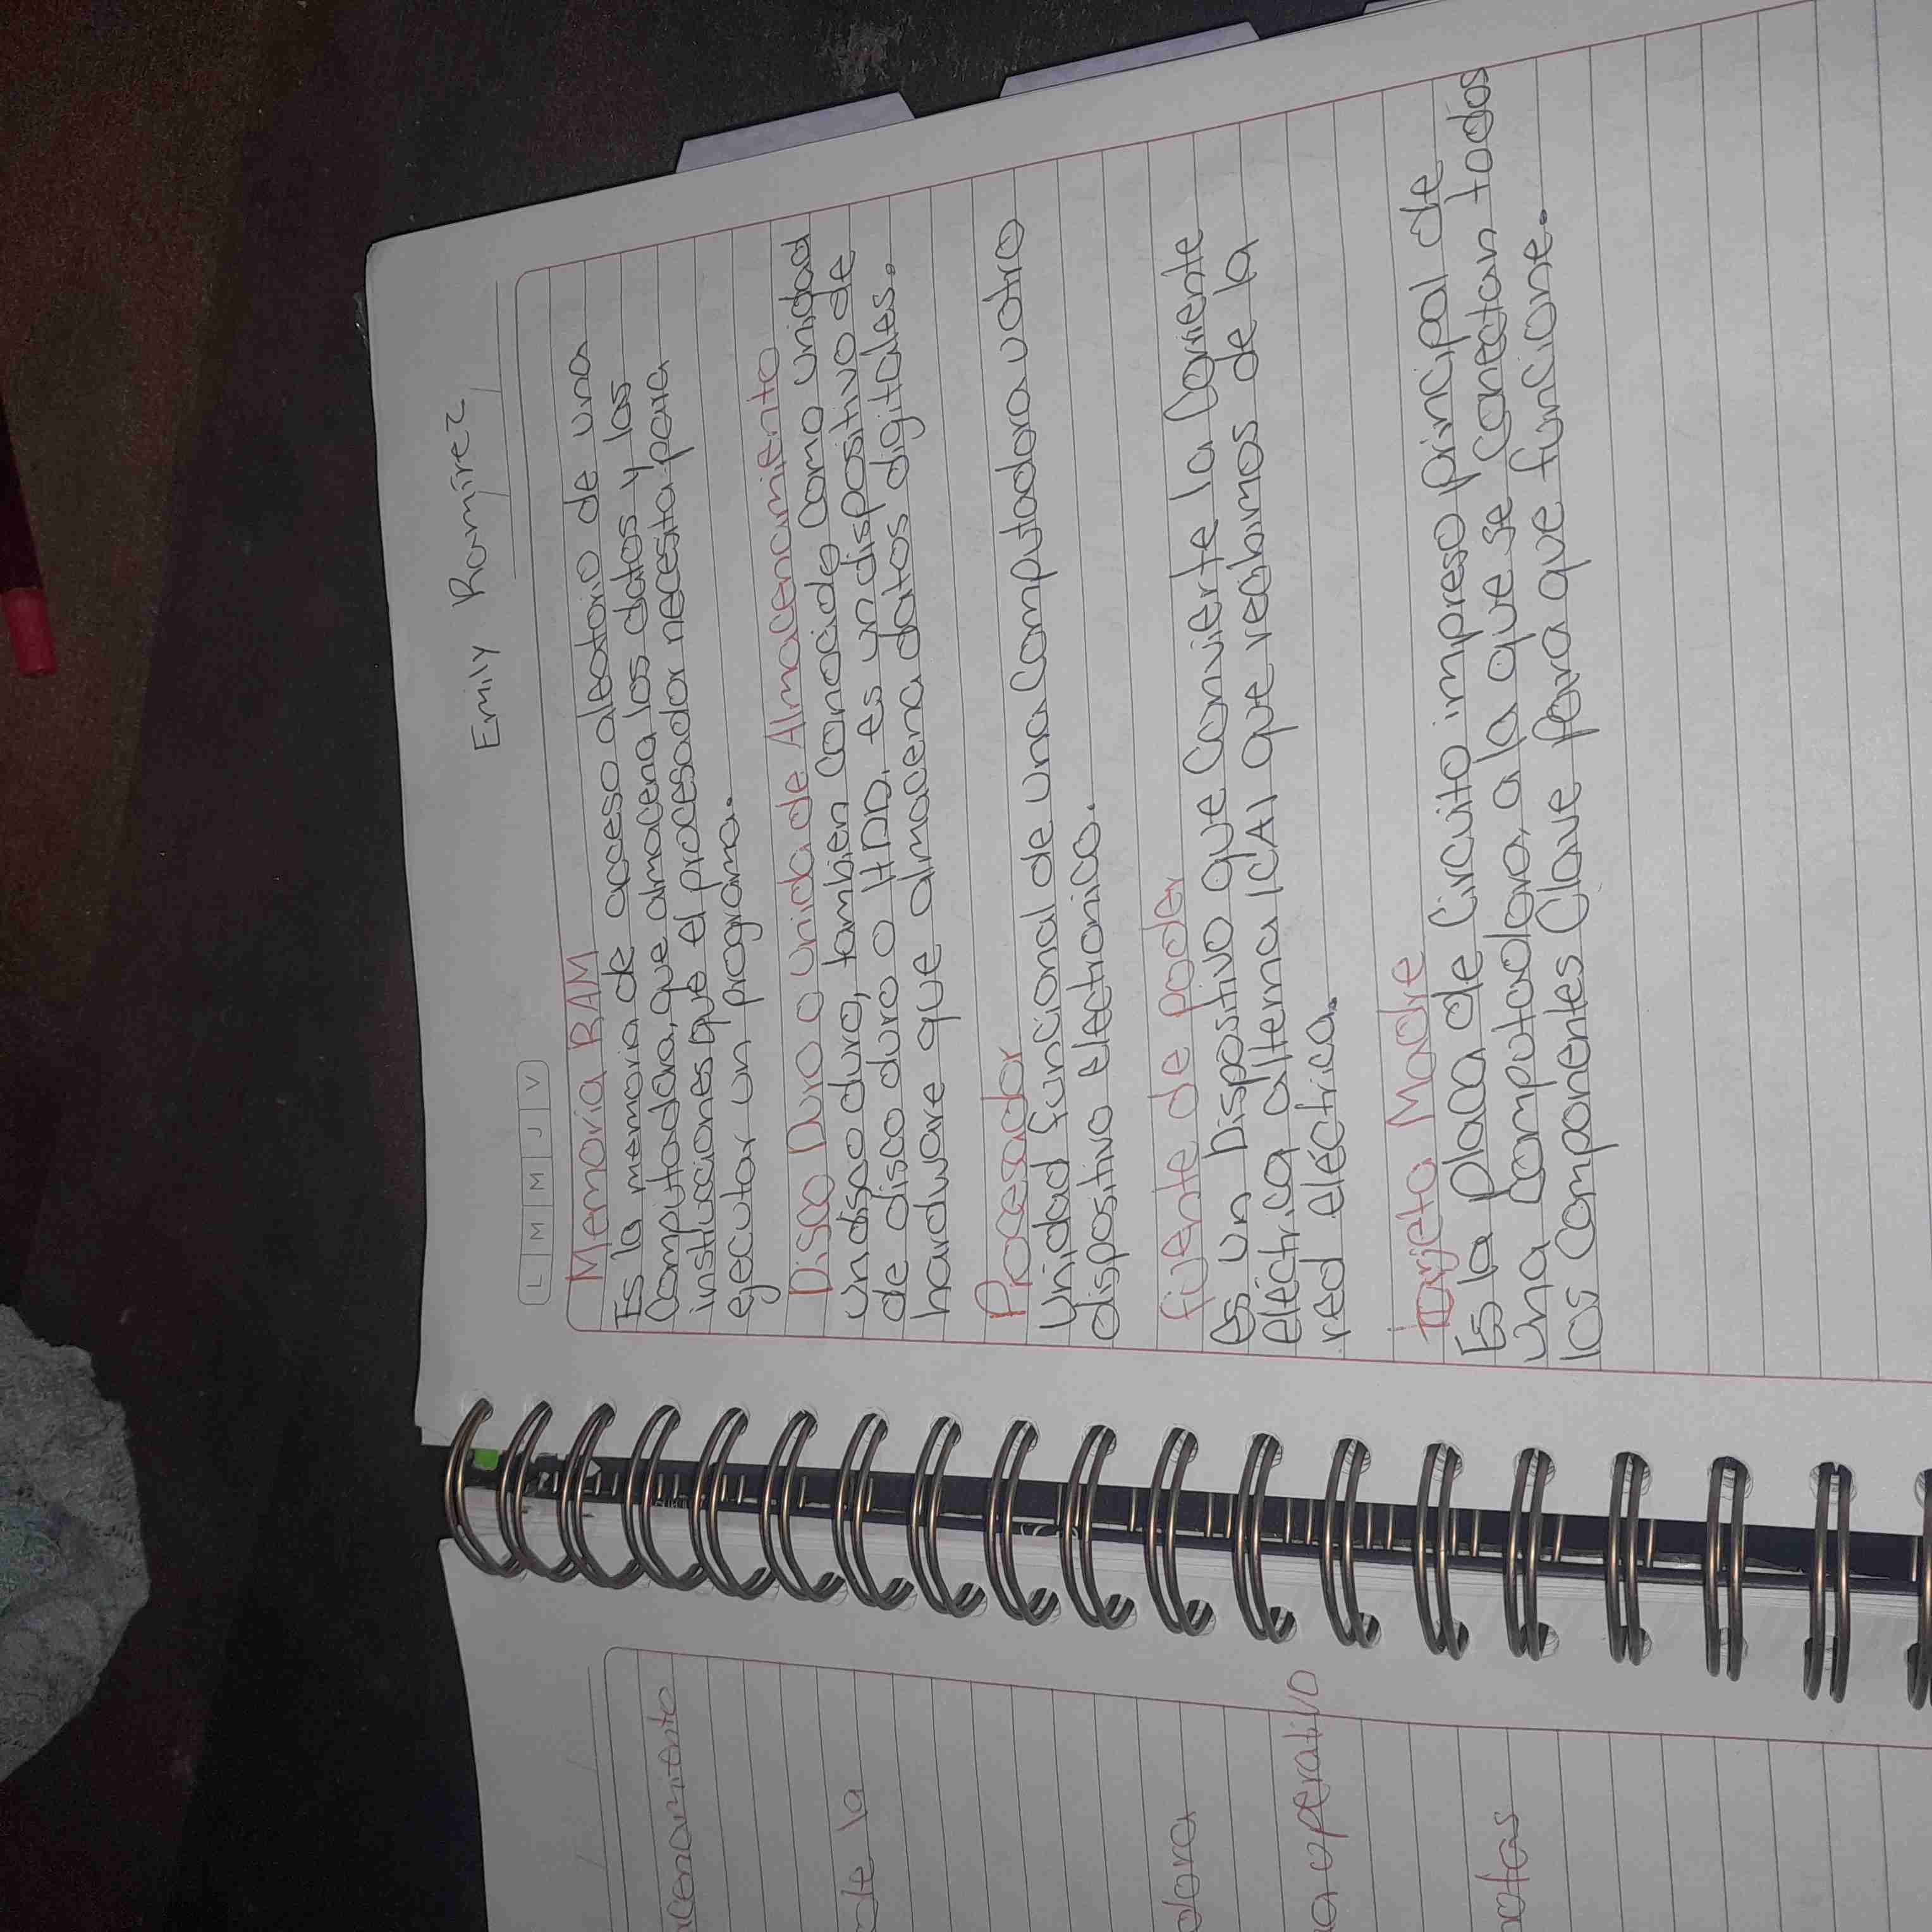 Emily Ramirez
L M M J V
Memoria RAM
Es la memoria de acceso aleatorio de una
Computadora, que almacena los datos y las
instucciones que el procesador necesita para
ejecutar un programa.
Disco Duro o unida de Almacenamiento
un disco duro, tambien conocido como unidad
de disco duro o HDD, es un dispositivo de
hardware que almacena datos digitales.
Procesador
Unidad funcional de una Computadora u otro
dispositivo electronico.
fuente de poder
Es un Dispositivo que Convierte la Corriente
eléctrica alterna (CA) que recibimos de la
red eléctrica.
tarjeta Madre
Es la placa de Circuito impreso principal de
una Computadora, a la que se conectan todos
los componentes Clave para que funcione.
acenamiento
de la
dora
a operativo